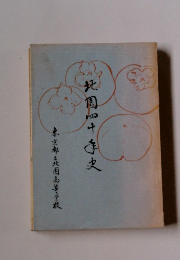 北園四十年史
東京都立北園高等学校